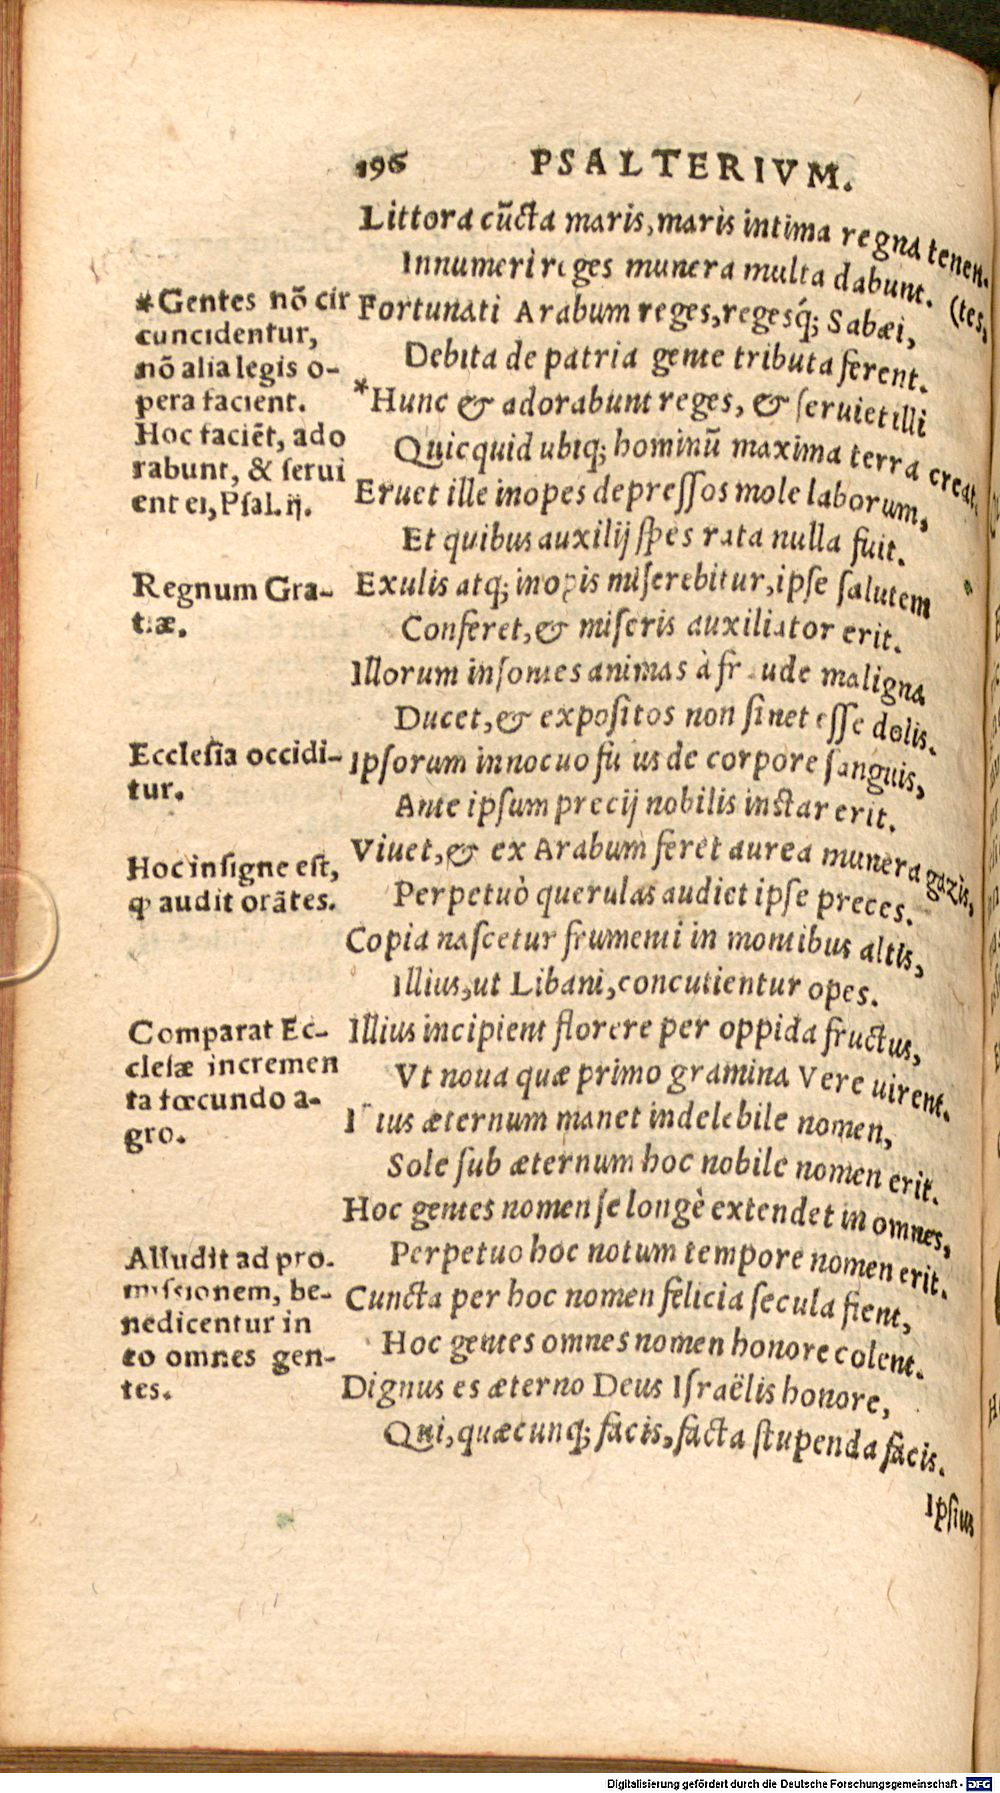 196 PSALTERIVM.
Littora cūcta maris, maris intima regna tenen-
Innumeri reges munera multa dabunt. (tes,
Fortunati Arabum reges, regesq́; Sabæi,
Debita de patria gente tributa ferent.
*Hunc & adorabunt reges, & seruiet illi
Quicquid ubiq; hominū maxima terra creat.
Eruet ille inopes depressos mole laborum,
Et quibus auxilij spes rata nulla fuit.
Exulis atq; inopis miserebitur, ipse salutem
Conferet, & miseris auxiliator erit.
Illorum insontes animas à fraude maligna
Ducet, & expositos non sinet esse dolis.
Ipsorum innocuo fusus de corpore sanguis,
Ante ipsum precij nobilis instar erit.
Viuet, & ex Arabum feret aurea munera gazis,
Perpetuò querulas audiet ipse preces.
Copia nascetur frumenti in montibus altis,
Illius, ut Libani, concutientur opes.
Illius incipient florere per oppida fructus,
Vt noua quæ primo gramina Vere uirent.
Illius æternum manet indelebile nomen,
Sole sub æternum hoc nobile nomen erit.
Hoc gentes nomen se longè extendet in omnes,
Perpetuo hoc notum tempore nomen erit.
Cuncta per hoc nomen felicia secula fient,
Hoc gentes omnes nomen honore colent.
Dignus es æterno Deus Israëlis honore,
Qui, quæcunq; facis, facta stupenda facis.
Ipsius
*Gentes nō cir
cuncidentur,
nō alia legis o-
pera facient.
Hoc faciēt, ado
rabunt, & serui
ent ei, Psal. ij.
Regnum Gra-
tiæ.
Ecclesia occidi-
tur.
Hoc insigne est,
ꝙ audit orātes.
Comparat Ec-
clesiæ incremen
ta fœcundo a-
gro.
Alludit ad pro-
missionem, be-
nedicentur in
eo omnes gen-
tes.
Digitalisierung gefördert durch die Deutsche Forschungsgemeinschaft - DFG